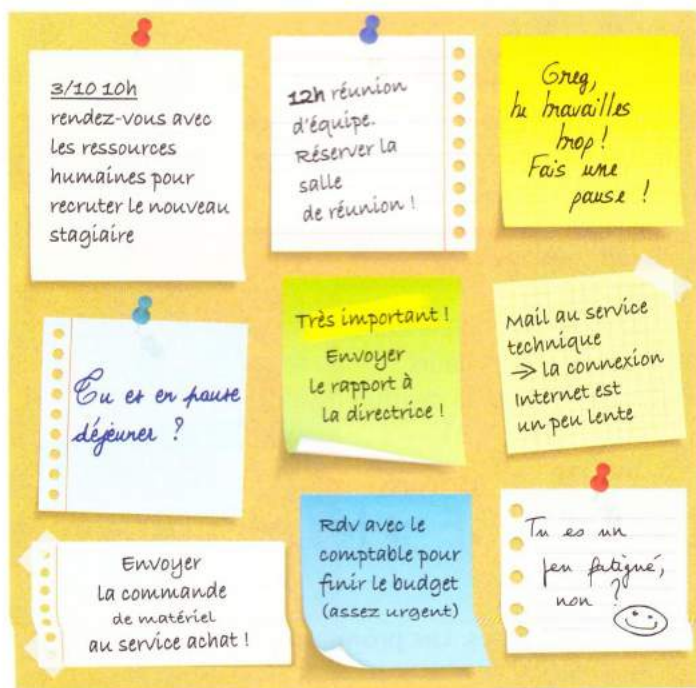 3/10 10h
rendez-vous avec
les ressources
humaines pour
recruter le nouveau
stagiaire
12h réunion
d'équipe.
Réserver la
salle
de réunion !
Greg,
tu travailles
trop !
Fais une
pause !
Tu es en pause
déjeuner ?
Très important !
Envoyer
le rapport à
la directrice !
Mail au service
technique
→ la connexion
Internet est
un peu lente
Envoyer
la commande
de matériel
au service achat !
Rdv avec le
comptable pour
finir le budget
(assez urgent)
Tu es un
peu fatigué,
non ?